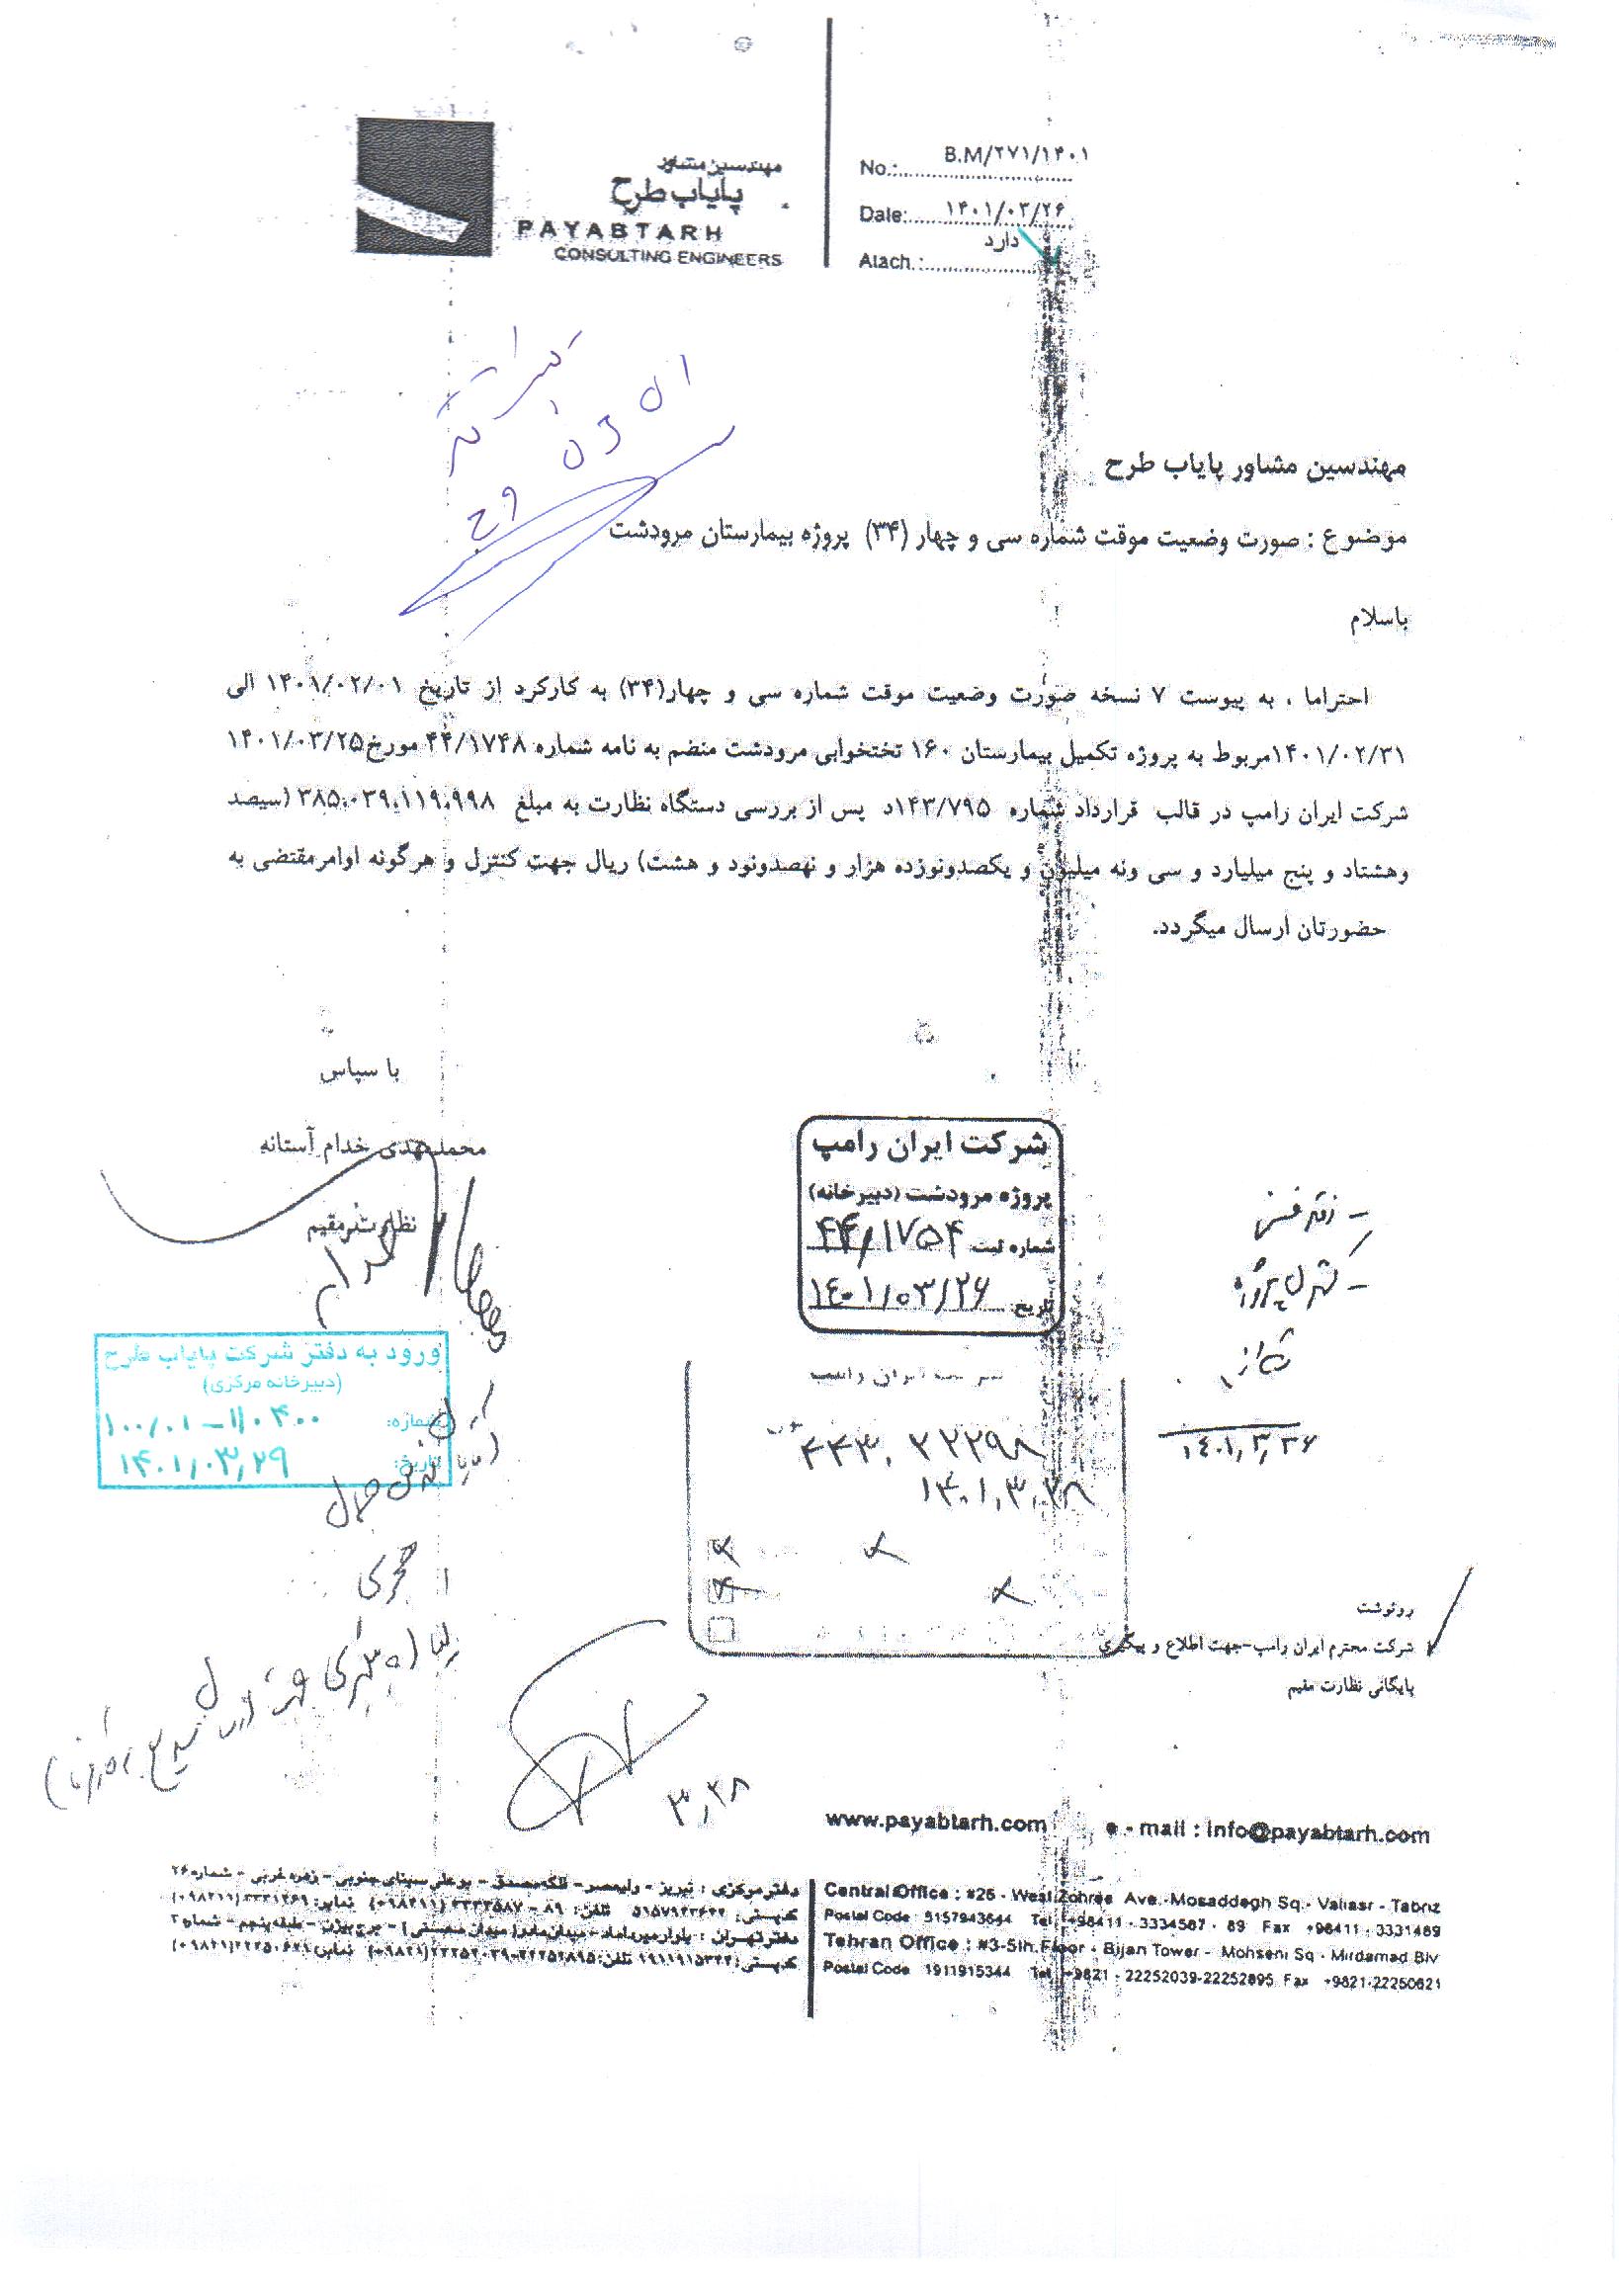 مهندسین مشاور
پایاب طرح
PAYABTARH
CONSULTING ENGINEERS
No.: B.M/۲۷۱/۱۴۰۱
Date: ۱۴۰۱/۰۳/۲۶
Atach.: دارد
مهندسین مشاور پایاب طرح
موضوع : صورت وضعیت موقت شماره سی و چهار (۳۴) پروژه بیمارستان مرودشت
باسلام
احتراما ، به پیوست ۷ نسخه صورت وضعیت موقت شماره سی و چهار(۳۴) به کارکرد از تاریخ ۱۴۰۱/۰۲/۰۱ الی
۱۴۰۱/۰۲/۳۱مربوط به پروژه تکمیل بیمارستان ۱۶۰ تختخوابی مرودشت منضم به نامه شماره ۴۴/۱۷۴۸ مورخ۱۴۰۱/۰۳/۲۵
شرکت ایران رامپ در قالب قرارداد شماره ۱۴۳/۷۹۵د پس از بررسی دستگاه نظارت به مبلغ ۳۸۵،۰۳۹،۱۱۹،۹۹۸ (سیصد
وهشتاد و پنج میلیارد و سی ونه میلیون و یکصدونوزده هزار و نهصدونود و هشت) ریال جهت کنترل و هرگونه اوامرمقتضی به
حضورتان ارسال میگردد.
با سپاس
محمدمهدی خدام آستانه
نظارت مقیم
شرکت ایران رامپ
پروژه مرودشت (دبیرخانه)
شماره ثبت ۴۴/۱۷۵۴
تاریخ: ۱۴۰۱/۰۳/۲۶
- دفتر فنی
- کنترل پروژه
۱۴۰۱,۳,۲۶
ورود به دفتر شرکت پایاب طرح
(دبیرخانه مرکزی)
شماره: ۱۰۰/۰۱-۱۱۰۴۰۰
تاریخ: ۱۴۰۱/۰۳/۲۹
شرکت ایران رامپ
۱۴۰۱,۳,۲۸
۳,۲۸
رونوشت
شرکت محترم ایران رامپ-جهت اطلاع و پیگیری
بایگانی نظارت مقیم
www.payabtarh.com e - mail : info@payabtarh.com
دفتر مرکزی : تبریز - ولیعصر - فلکه مصدق - بوعلی سینای جنوبی - زهره غربی - شماره ۲۶
Central Office : #26 - West Zohree Ave.-Mosaddegh Sq.- Valiasr - Tabriz
Postal Code 5157943644 Tel +98411 - 3334587 - 89 Fax +98411 - 3331489
Tehran Office : #3-5th.Floor - Bijan Tower - Mohseni Sq - Mirdamad Blv
Postal Code 1911915344 Tel +9821 - 22252039-22252895 Fax +9821-22250621